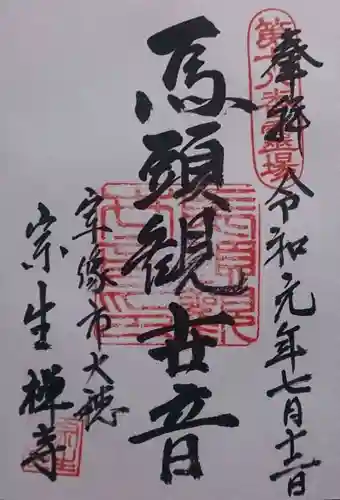 奉拝
第十八番霊場
令和元年七月十三日
馬頭観世音
宗像市大穂
宗生禅寺